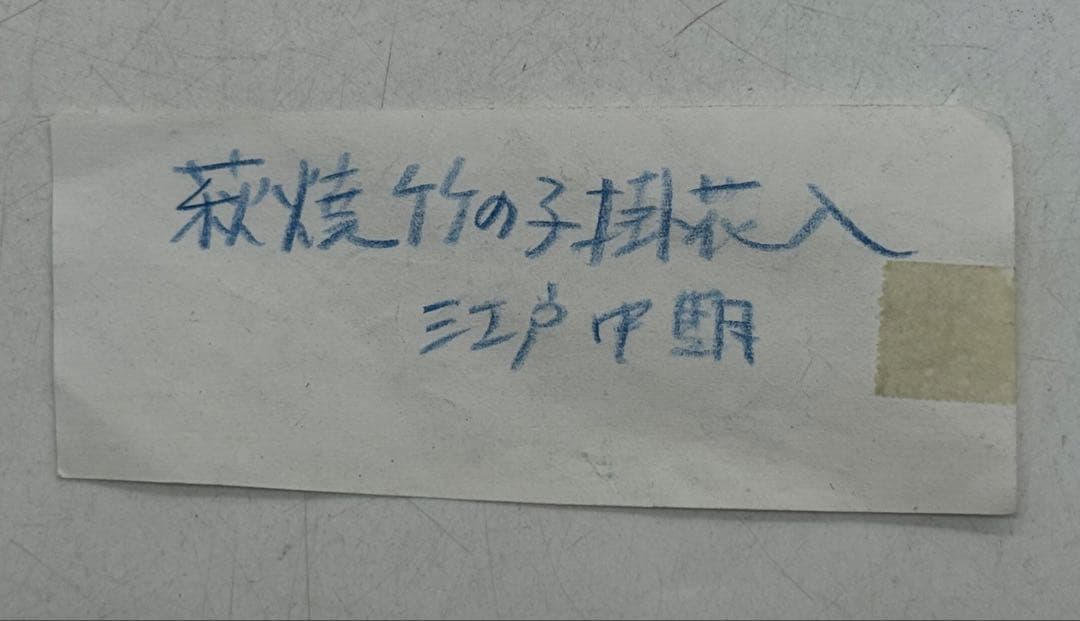 萩焼竹の子掛花入
江戸中期